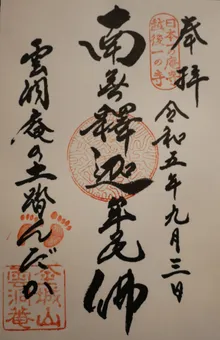 奉拝
令和五年九月三日
日本一庵寺
越後一の寺
南無釋迦牟尼佛
雲洞庵の土踏んだか
金城山
雲洞庵